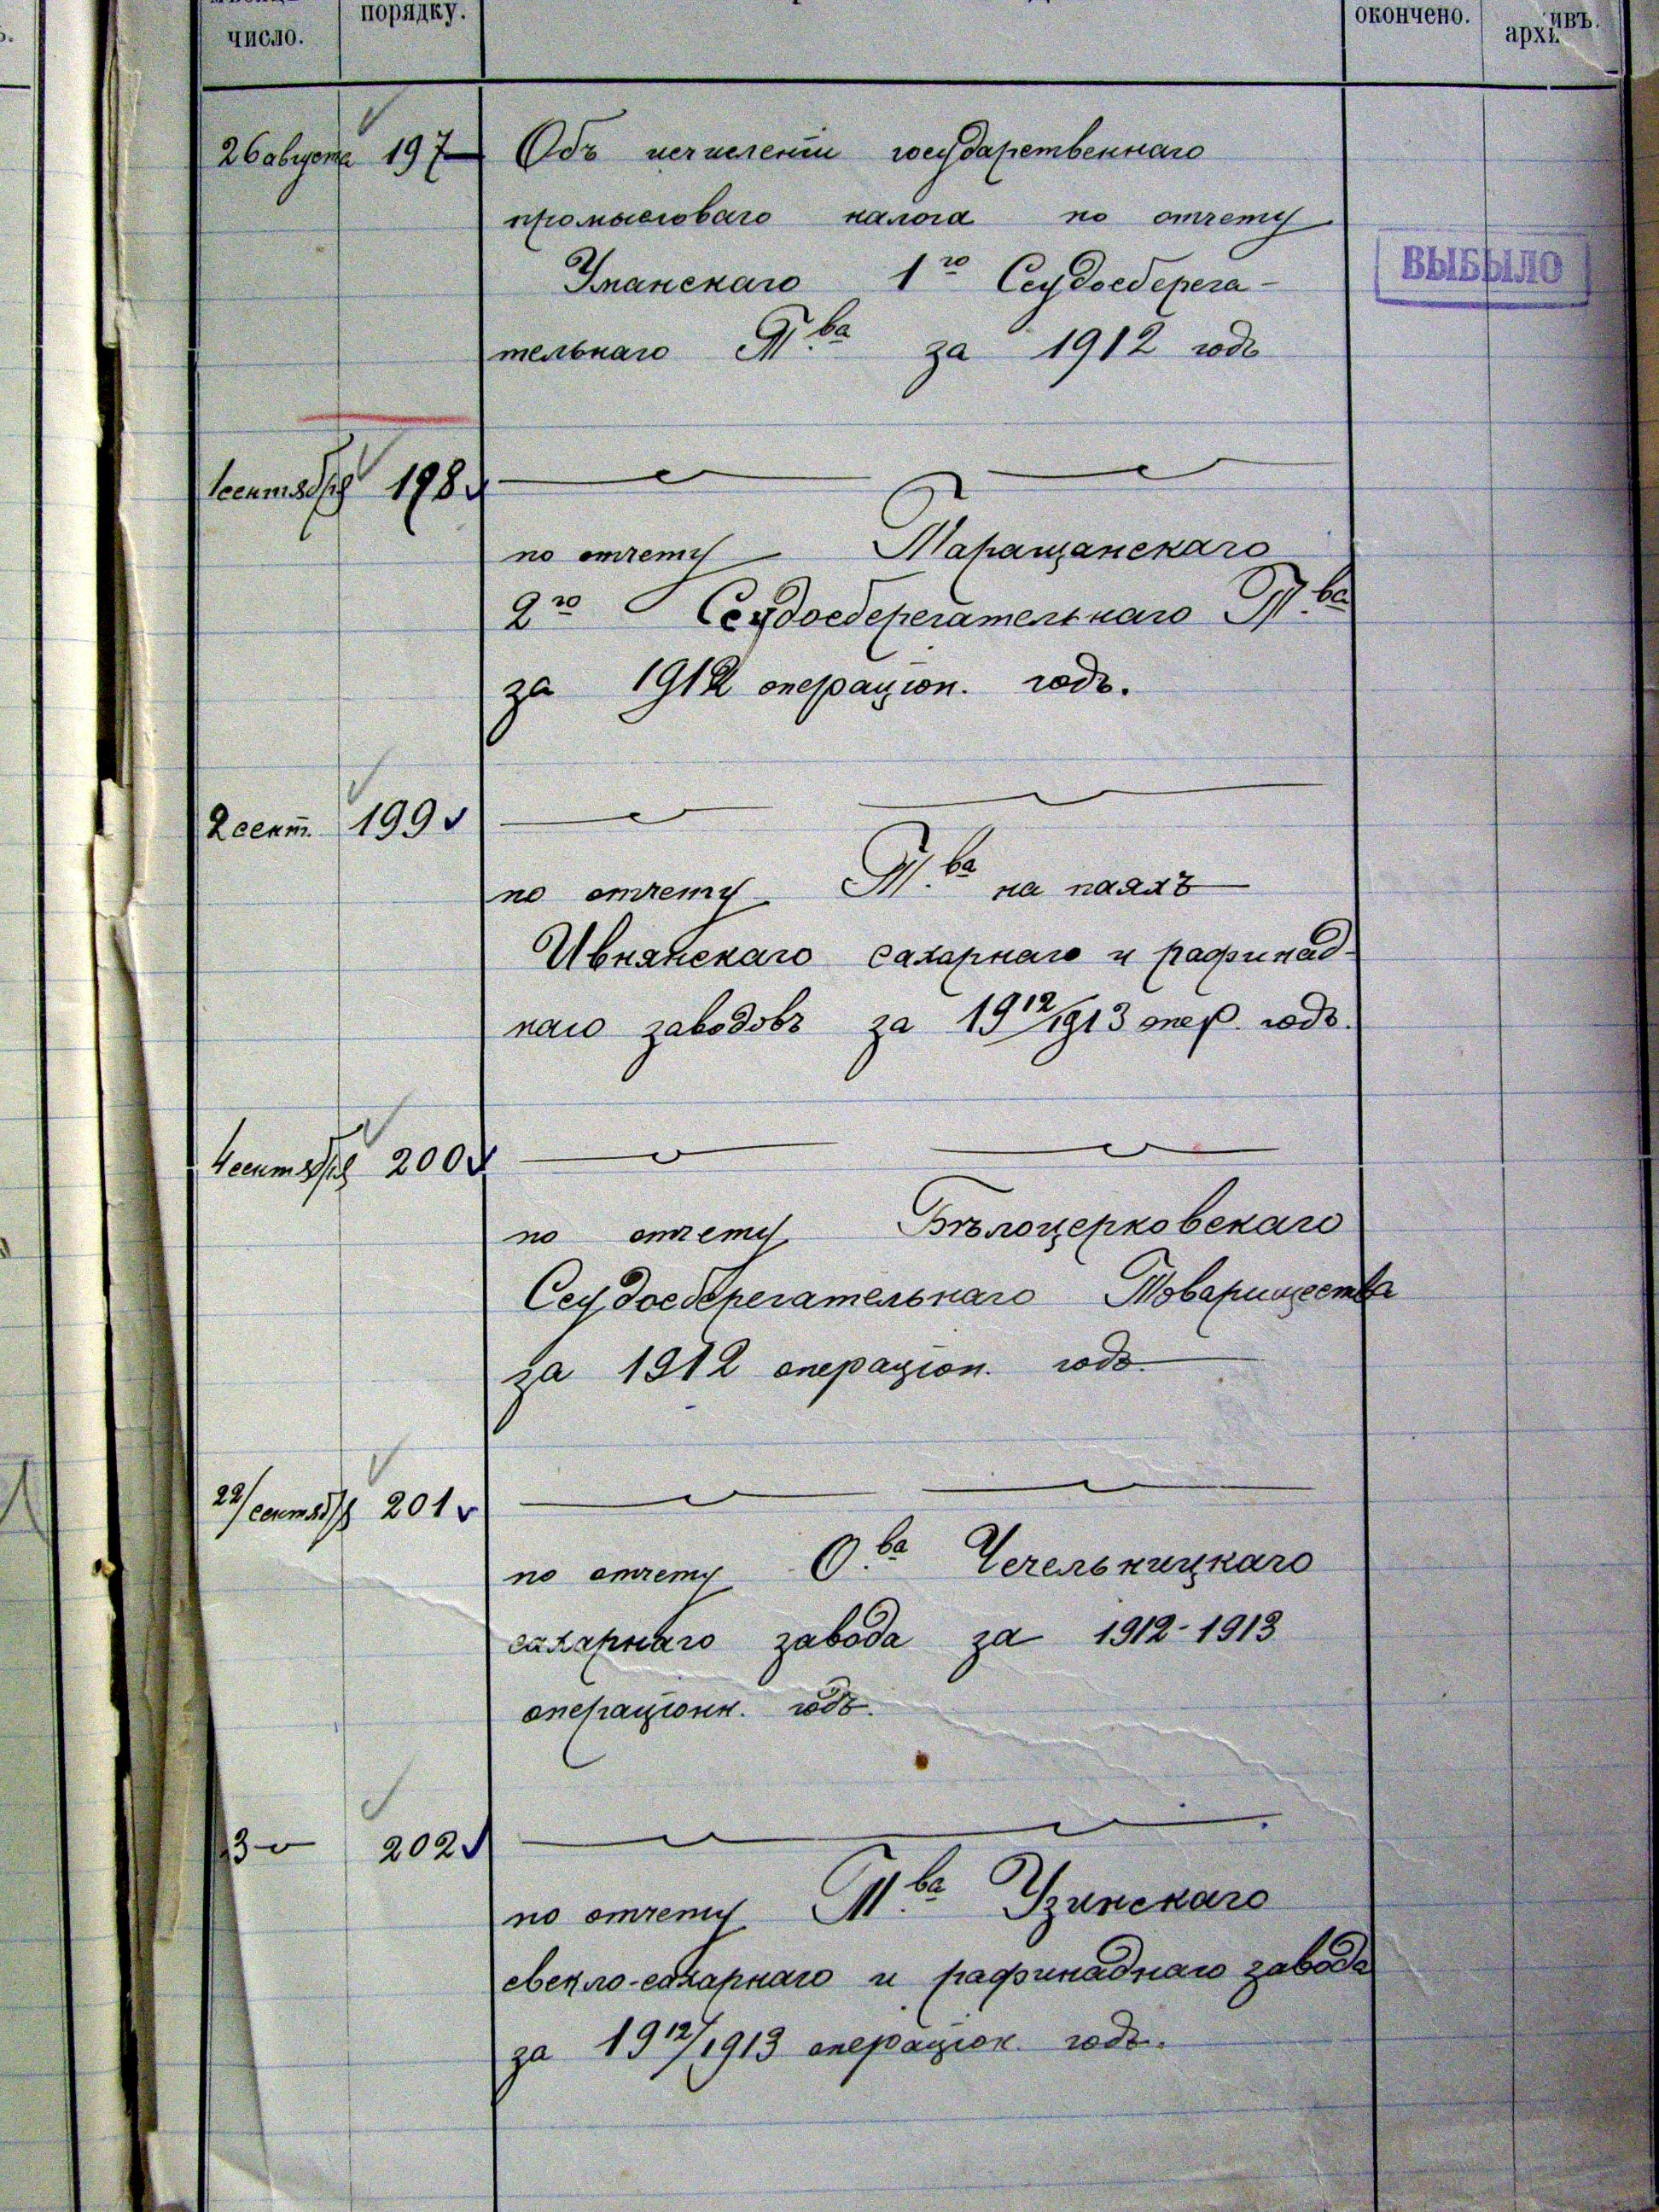 число. порядку. окончено. архивъ.
26 августа 197 Объ исчисленіи государственнаго
промысловаго налога по отчету
Уманскаго 1го Ссудосберега-
ВЫБЫЛО
тельнаго Т.ва за 1912 годъ
1 сентября 198
по отчету Таращанскаго
2го Ссудосберегательнаго Т.ва
за 1912 операціон. годъ.
2 сент. 199
по отчету Т.ва на паяхъ
Ивнянскаго сахарнаго и рафинад-
наго заводовъ за 1912/1913 опер. годъ.
4 сентября 200
по отчету Бѣлоцерковскаго
Ссудосберегательнаго Товарищества
за 1912 операціон. годъ.
22/сентября 201
по отчету О.ва Чечельницкаго
сахарнаго завода за 1912-1913
операціонн. годъ.
3 202
по отчету Т.ва Узинскаго
свекло-сахарнаго и рафинаднаго завода
за 1912/1913 операціон. годъ.